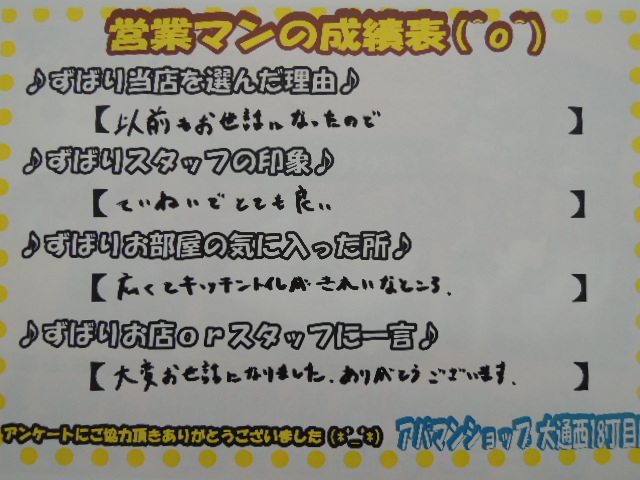 営業マンの成績表(^o^)
♪ずばり当店を選んだ理由♪
【以前もお世話になったので】
♪ずばりスタッフの印象♪
【ていねいでとても良い】
♪ずばりお部屋の気に入った所♪
【広くてキッチントイレがきれいなところ.】
♪ずばりお店orスタッフに一言♪
【大変お世話になりました.ありがとうございます.】
アンケートにご協力頂きありがとうございました(*^_^*)
アパマンショップ 大通西18丁目